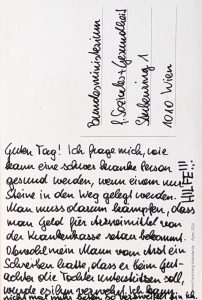 Bundesministerium
f. Soziales + Gesundheit
Stubenring 1
1010 Wien
Guten Tag! Ich frage mich, wie
kann eine schwer kranke Person
gesund werden, wenn einem nur
Steine in den Weg gelegt werden.
Man muss darum kämpfen, dass
man Geld für Arzneimittel von
der Krankenkasse retour bekommt.
Obwohl mein Mann vom Arzt ein
Schreiben hatte, dass er beim Gut-
achten die Tochter unterstützen soll,
wurde es ihm verwehrt. Ich kann
nicht mehr
so verzweifelt bin ich.
HILFE!!!